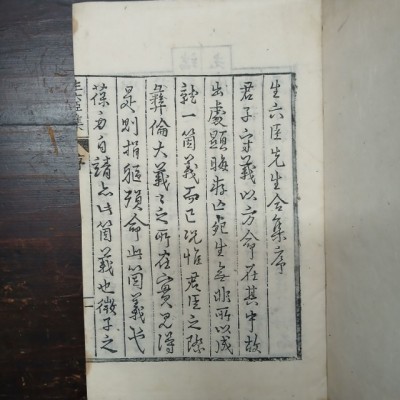 生六臣先生合集序
君子守義以方命在其中故
出處顯晦存亡死生無非所以成
就一箇義而已況惟君臣之際
彝倫大義〻之所在實見得
是則捐軀殞命此箇義也
葆身自靖亦此箇義也微子之
生六臣集
序